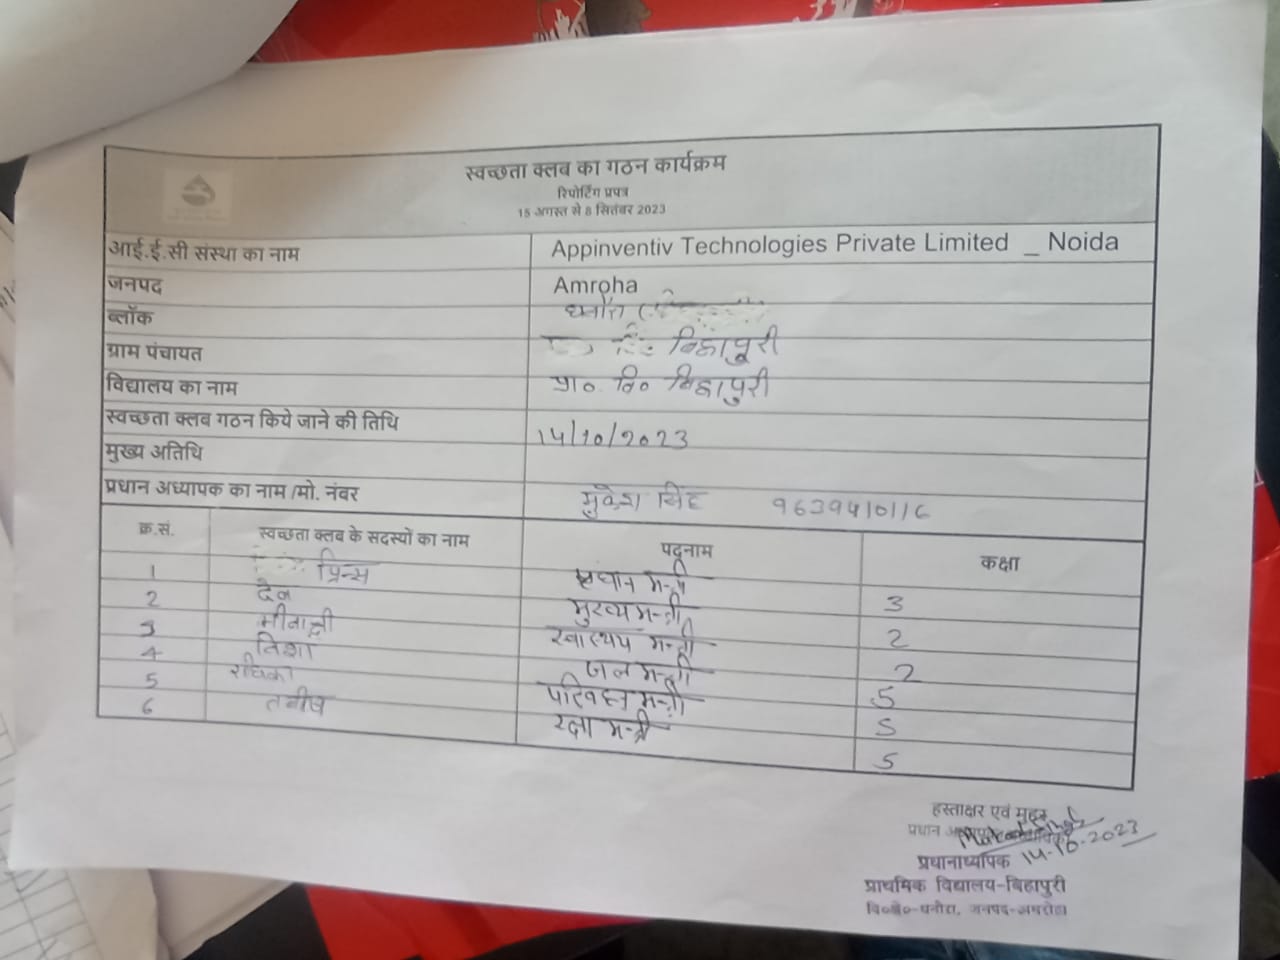 स्वच्छता क्लब का गठन कार्यक्रम
रिपोर्टिंग प्रपत्र
15 अगस्त से 8 सितंबर 2023
आई.ई.सी संस्था का नाम Appinventiv Technologies Private Limited _ Noida
जनपद Amroha
ब्लॉक धनौरा
ग्राम पंचायत बिहापुरी
विद्यालय का नाम प्रा० वि० बिहापुरी
स्वच्छता क्लब गठन किये जाने की तिथि 14/10/2023
मुख्य अतिथि
प्रधान अध्यापक का नाम /मो. नंबर मुकेश सिंह 9639410116
क्र.सं. स्वच्छता क्लब के सदस्यों का नाम पदनाम कक्षा
1 प्रिन्स प्रधान मन्त्री 3
2 देव मुख्य मन्त्री 2
3 मीनाक्षी स्वास्थय मन्त्री 2
4 निशा जल मन्त्री 5
5 राधिका परिवहन मन्त्री 5
6 रक्षा मन्त्री 5
हस्ताक्षर एवं मुहर
प्रधान
14.10.2023
प्रधानाध्यापक
प्राथमिक विद्यालय-बिहापुरी
वि०क्षे०-धनौरा, जनपद-अमरोहा